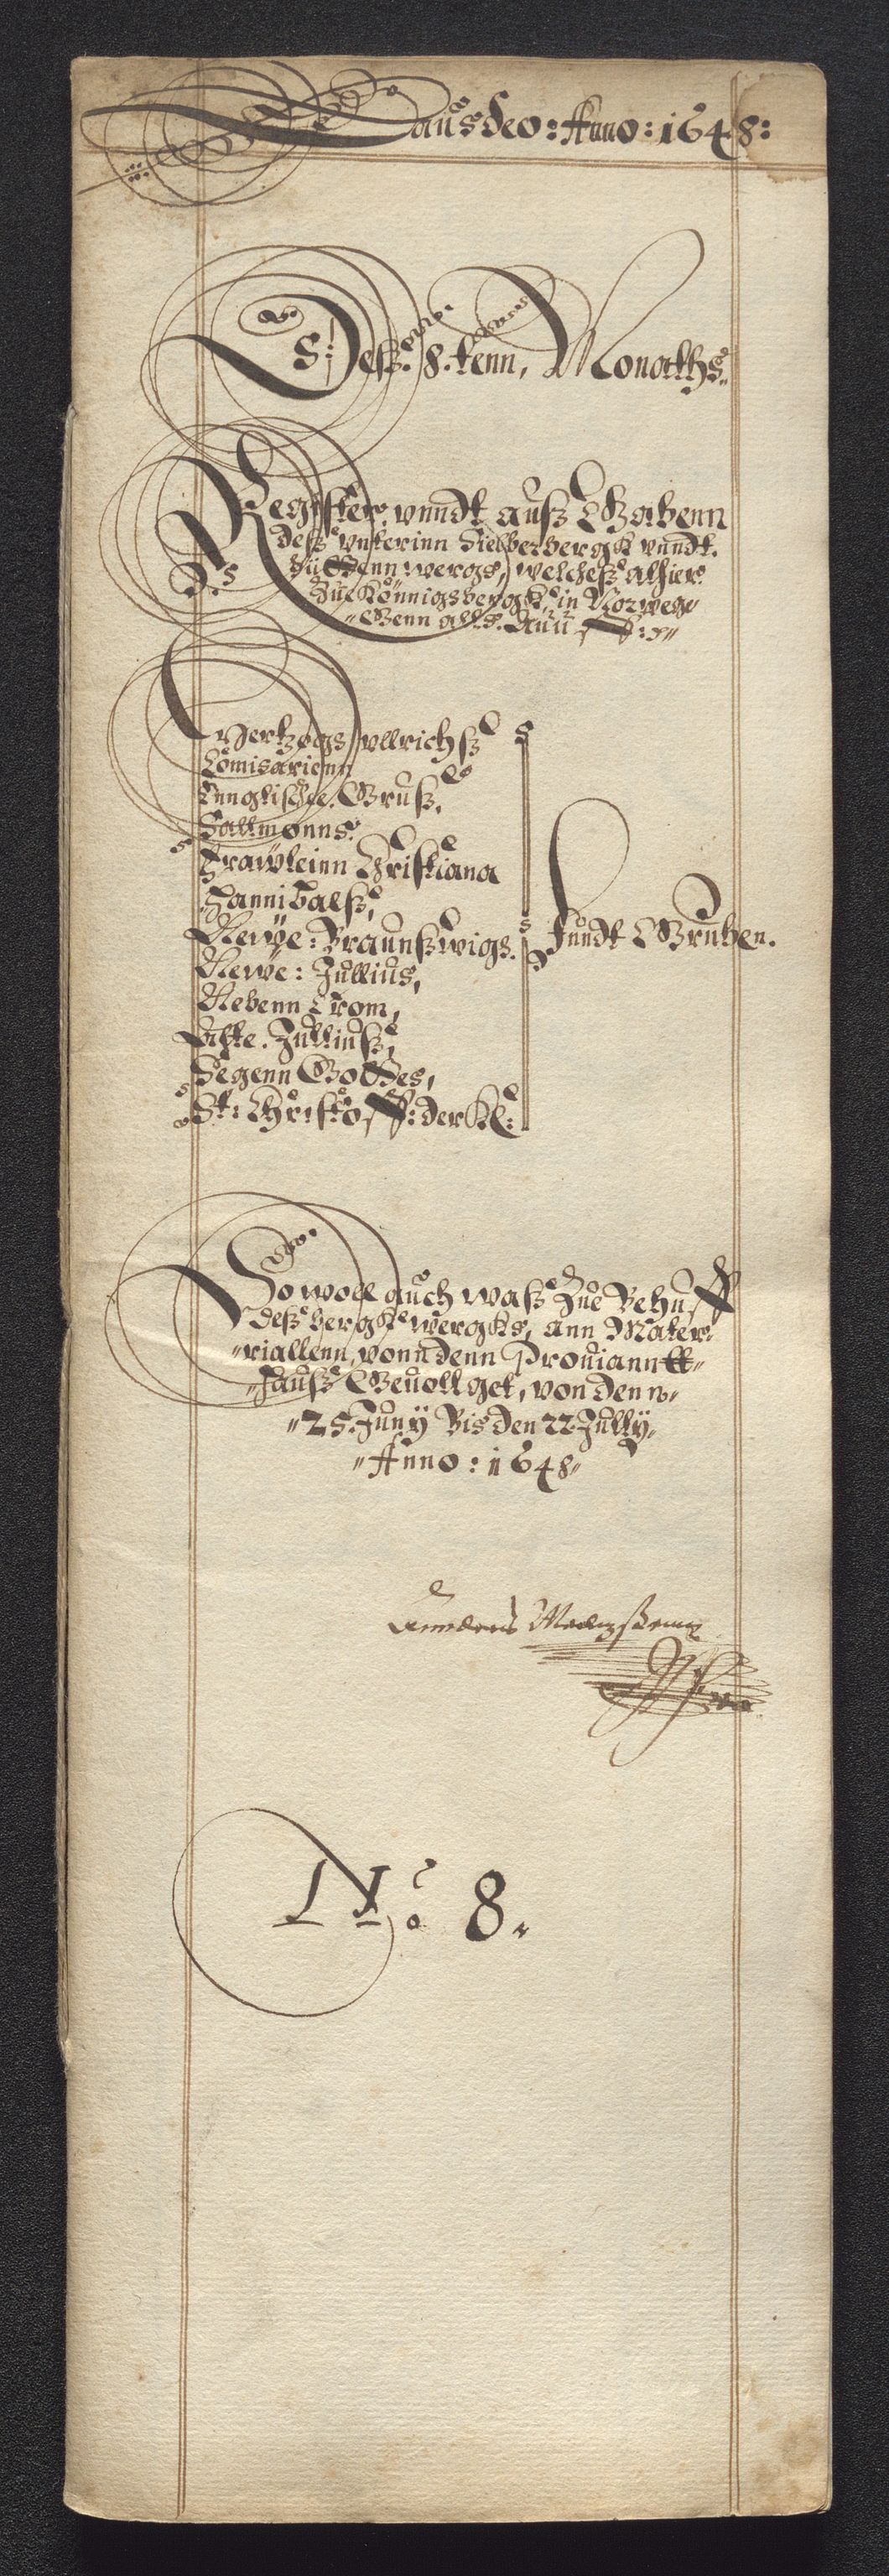 Laus deo: Anno: 1648:
Deß: 8. tenn, Monathß
Register vnndt außgabenn
deß vnterinn Sielberbergk vnndt
hüttenn wergs, welcheß alhier
Zue Könnigsbergk, in Norweg
genn alß. Auff:
Hertzogs Vllrichß
Comisarienn
Eenglische. Gruß,
Sallmonns.
Frawleinn Christiana
Hannibalß,
Newe: Braunßwigs.
Fundt Gruben.
Newe: Jullius,
Nebenn Trom,
Alte. Julliuß,
Segenn Gottes,
St: Christoff: der Kl:
So woll auch waß Zue Behuff
deß bergkwergks, ann Mater
riallenn, vonn denn Prouianntt
Hauß Geuollget, von denn
25. Juny Bis den 22 Jully
Anno: 1648
No: 8.